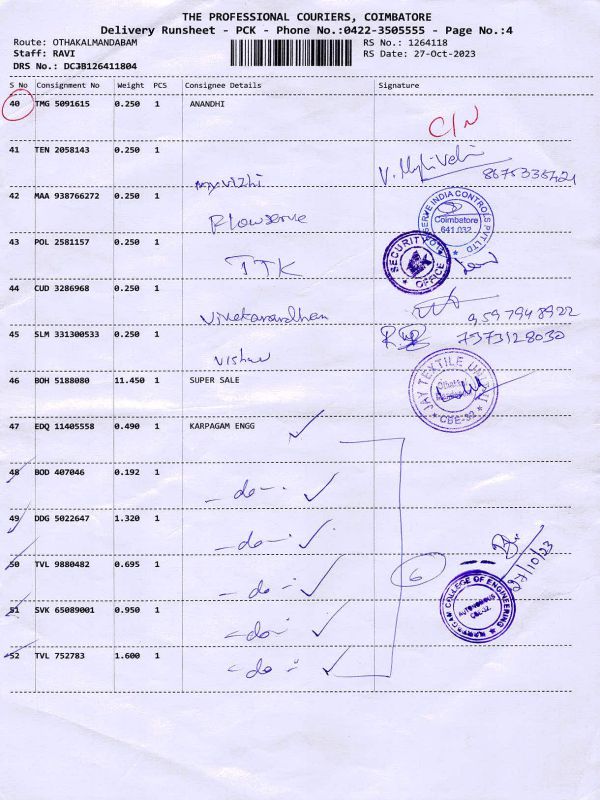 THE PROFESSIONAL COURIERS, COIMBATORE
Delivery Runsheet - PCK - Phone No.:0422-3505555 - Page No.:4
Route: OTHAKALMANDABAM RS No.: 1264118
Staff: RAVI RS Date: 27-Oct-2023
DRS No.: DCJB126411804
S No Consignment No Weight PCS Consignee Details Signature
40 TMG 5091615 0.250 1 ANANDHI
C/N
41 TEN 2058143 0.250 1
8675335421
42 MAA 938766272 0.250 1
Flowserve
SERVE INDIA CONTROLS PVT LTD
Coimbatore
641.032
43 POL 2581157 0.250 1
TTK
SECURITY OFFICE
44 CUD 3286968 0.250 1
Vivekavardhan 9597948922
45 SLM 331300533 0.250 1 7373128030
46 BOH 5188080 11.450 1 SUPER SALE
JAY TEXTILE UNIT
CBE-32
47 EDQ 11405558 0.490 1 KARPAGAM ENGG
48 BOD 407046 0.192 1
- do -
49 DDG 5022647 1.320 1
- do -
50 TVL 9880482 0.695 1
- do -
6
27/10/23
51 SVK 65089001 0.950 1
- do -
KARPAGAM COLLEGE OF ENGINEERING
AUTONOMOUS
CBE-32.
52 TVL 752783 1.600 1
- do -